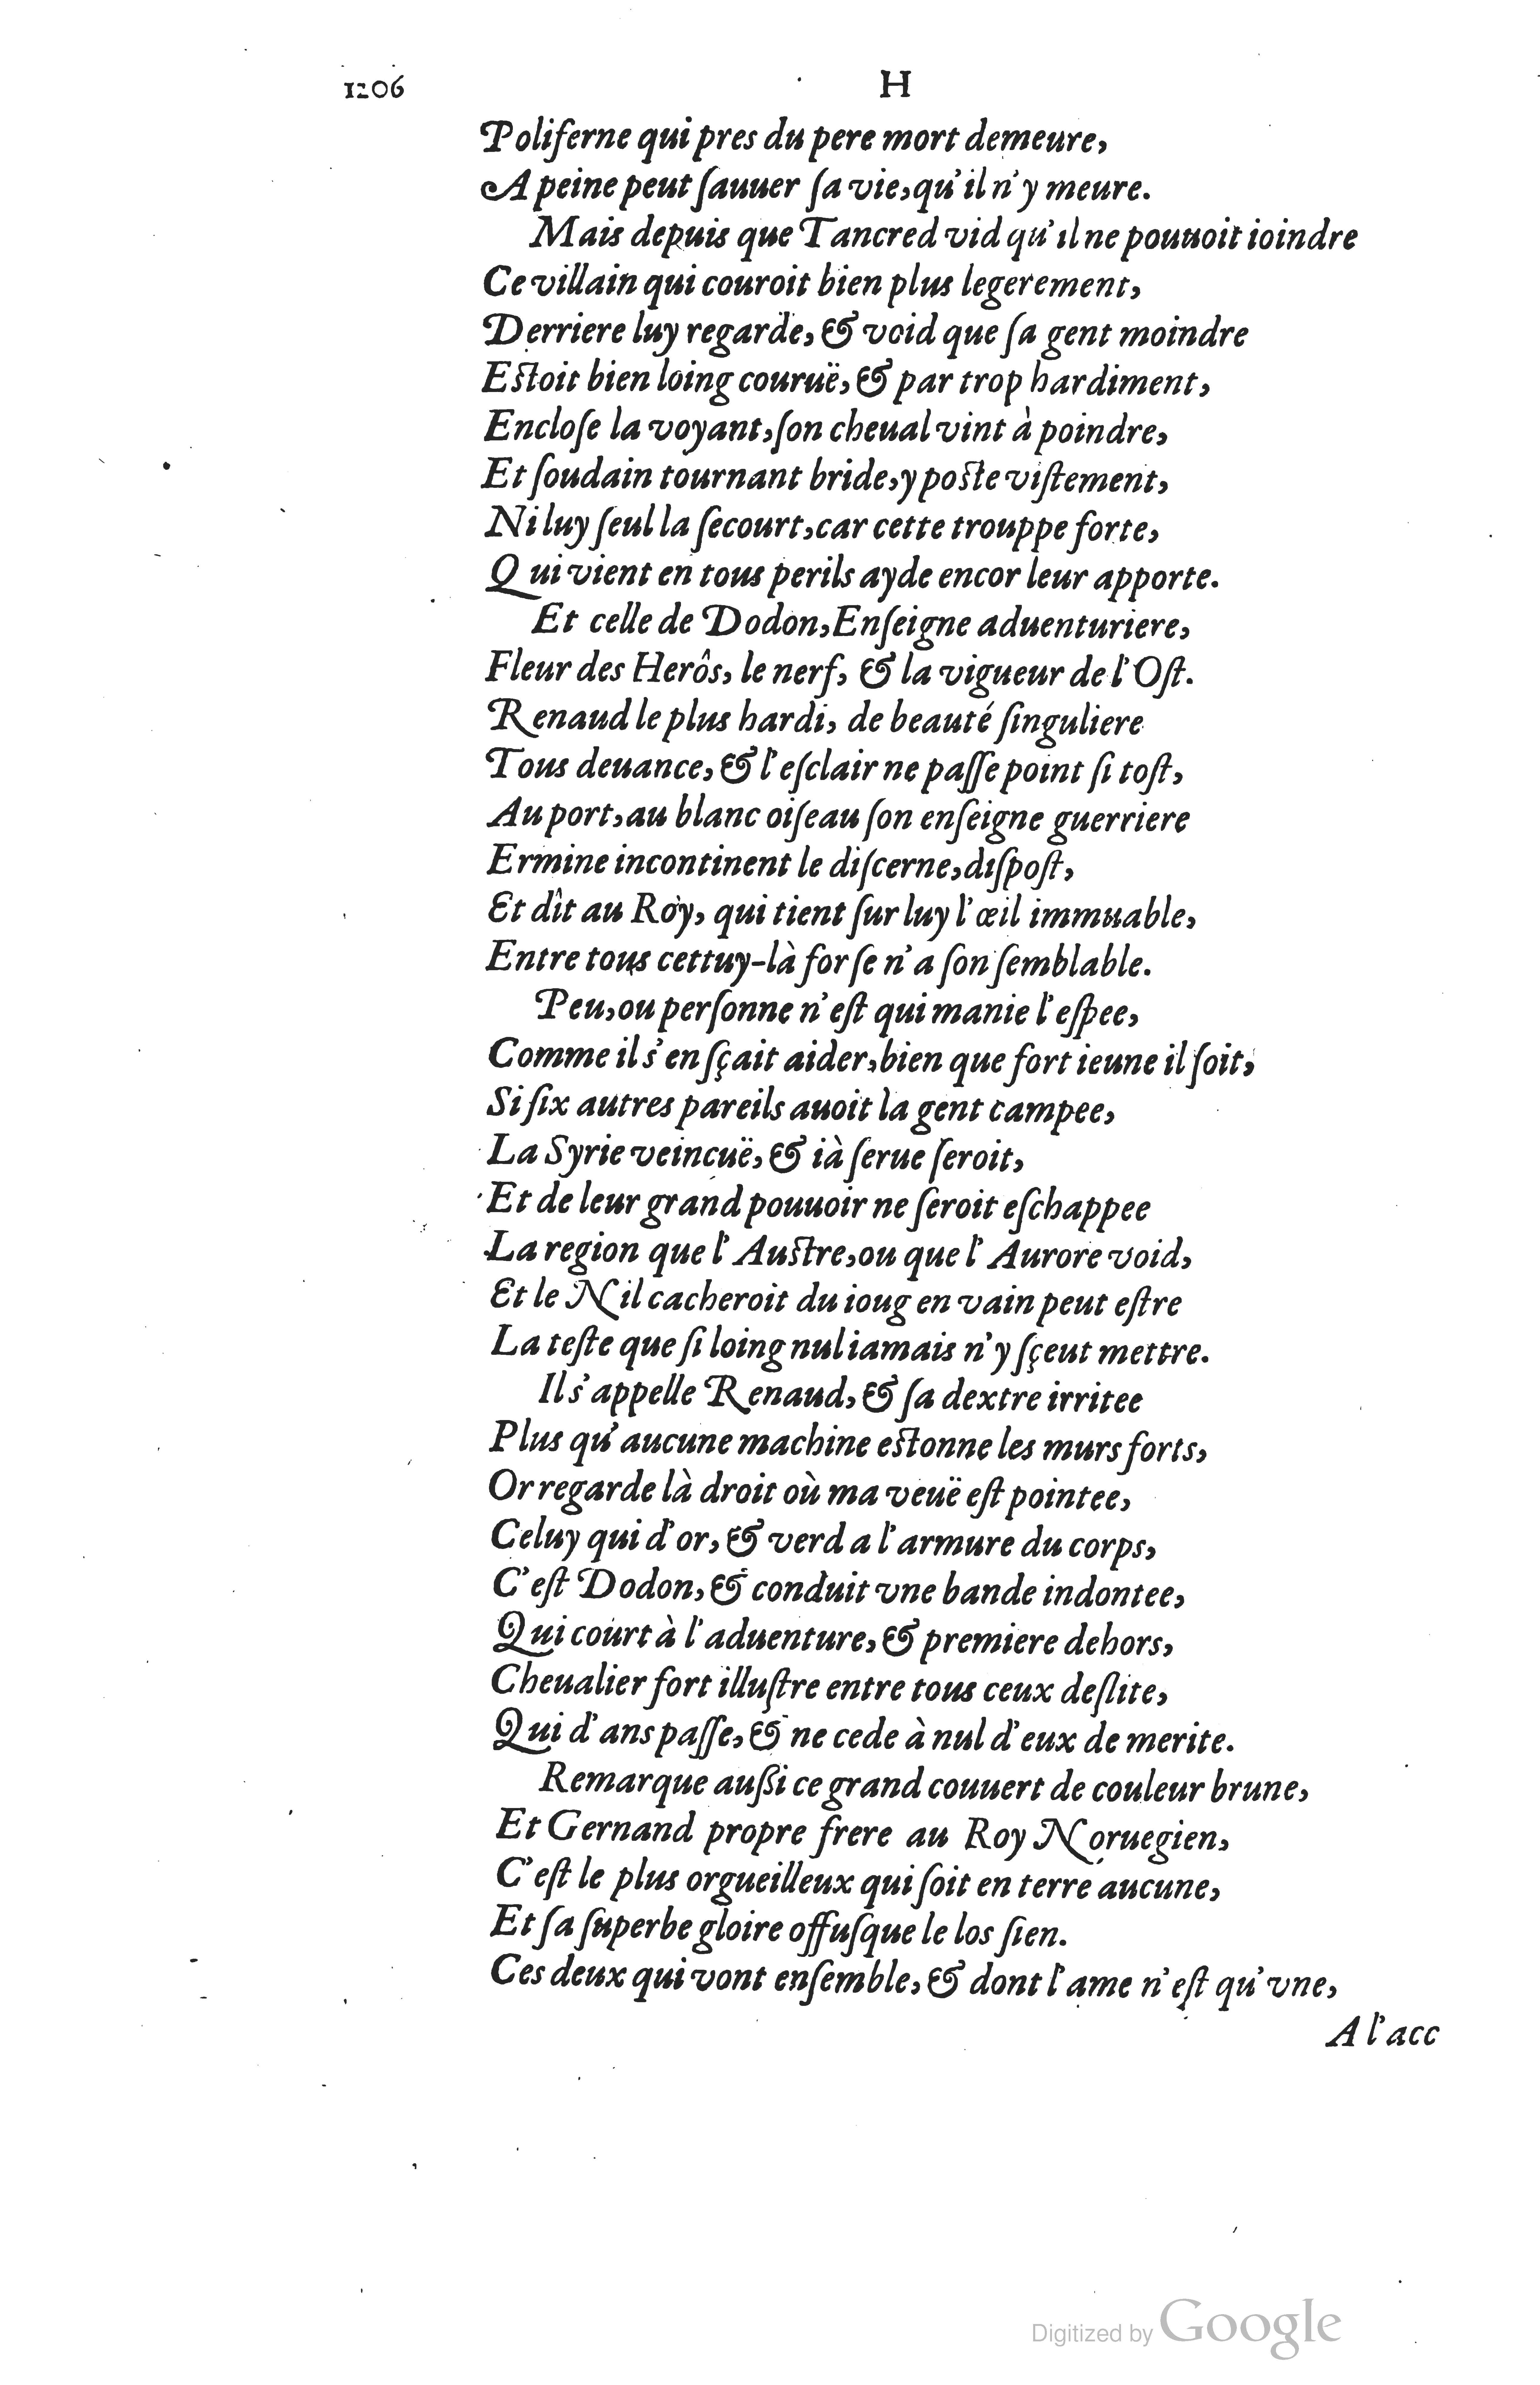 1206 H
Poliferne qui pres du pere mort demeure,
A peine peut ſauuer ſa vie, qu'il n'y meure.
Mais depuis que Tancred vid qu'il ne pouuoit ioindre
Ce villain qui couroit bien plus legerement,
Derriere luy regarde, & void que ſa gent moindre
Eſtoit bien loing couruë, & par trop hardiment,
Encloſe la voyant, ſon cheual vint à poindre,
Et ſoudain tournant bride, y poſte viſtement,
Ni luy ſeul la ſecourt, car cette trouppe forte,
Qui vient en tous perils ayde encor leur apporte.
Et celle de Dodon, Enſeigne aduenturiere,
Fleur des Herôs, le nerf, & la vigueur de l'Oſt.
Renaud le plus hardi, de beauté ſinguliere
Tous deuance, & l'eſclair ne paſſe point ſi toſt,
Au port, au blanc oiſeau ſon enſeigne guerriere
Ermine incontinent le diſcerne, diſpoſt,
Et dît au Roy, qui tient ſur luy l'œil immuable,
Entre tous cettuy-là forſe n'a ſon ſemblable.
Peu, ou perſonne n'eſt qui manie l'eſpee,
Comme il s'en ſçait aider, bien que fort ieune il ſoit,
Si ſix autres pareils auoit la gent campee,
La Syrie veincuë, & ià ſerue ſeroit,
Et de leur grand pouuoir ne ſeroit eſchappee
La region que l'Auſtre, ou que l'Aurore void,
Et le Nil cacheroit du ioug en vain peut eſtre
La teſte que ſi loing nul iamais n'y ſçeut mettre.
Il s'appelle Renaud, & ſa dextre irritee
Plus qu'aucune machine eſtonne les murs forts,
Or regarde là droit où ma veuë eſt pointee,
Celuy qui d'or, & verd a l'armure du corps,
C'eſt Dodon, & conduit vne bande indontee,
Qui court à l'aduenture, & premiere dehors,
Cheualier fort illuſtre entre tous ceux deſlite,
Qui d'ans paſſe, & ne cede à nul d'eux de merite.
Remarque auſſi ce grand couuert de couleur brune,
Et Gernand propre frere au Roy Noruegien,
C'eſt le plus orgueilleux qui ſoit en terre aucune,
Et ſa ſuperbe gloire offuſque le los ſien.
Ces deux qui vont enſemble, & dont l'ame n'eſt qu'vne,
A l'acc
Digitized by Google